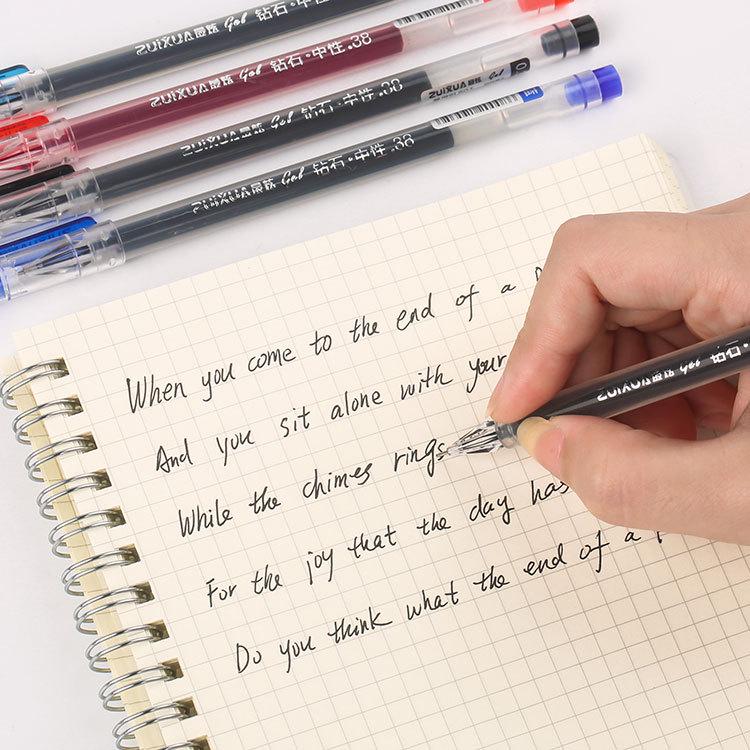 ZUIXUA最炫 Gel 钻石·中性.38
ZUIXUA最炫 Gel 钻石·中性.38
ZUIXUA最炫 Gel 钻石·中性.38
ZUIXUA
ZUIXUA最炫 Gel 钻石·中性.38
When you come to the end of a
And you sit alone with your
While the chimes rings
ZUIXUA最炫 Gel 钻石·
For the joy that the day has
Do you think what the end of a